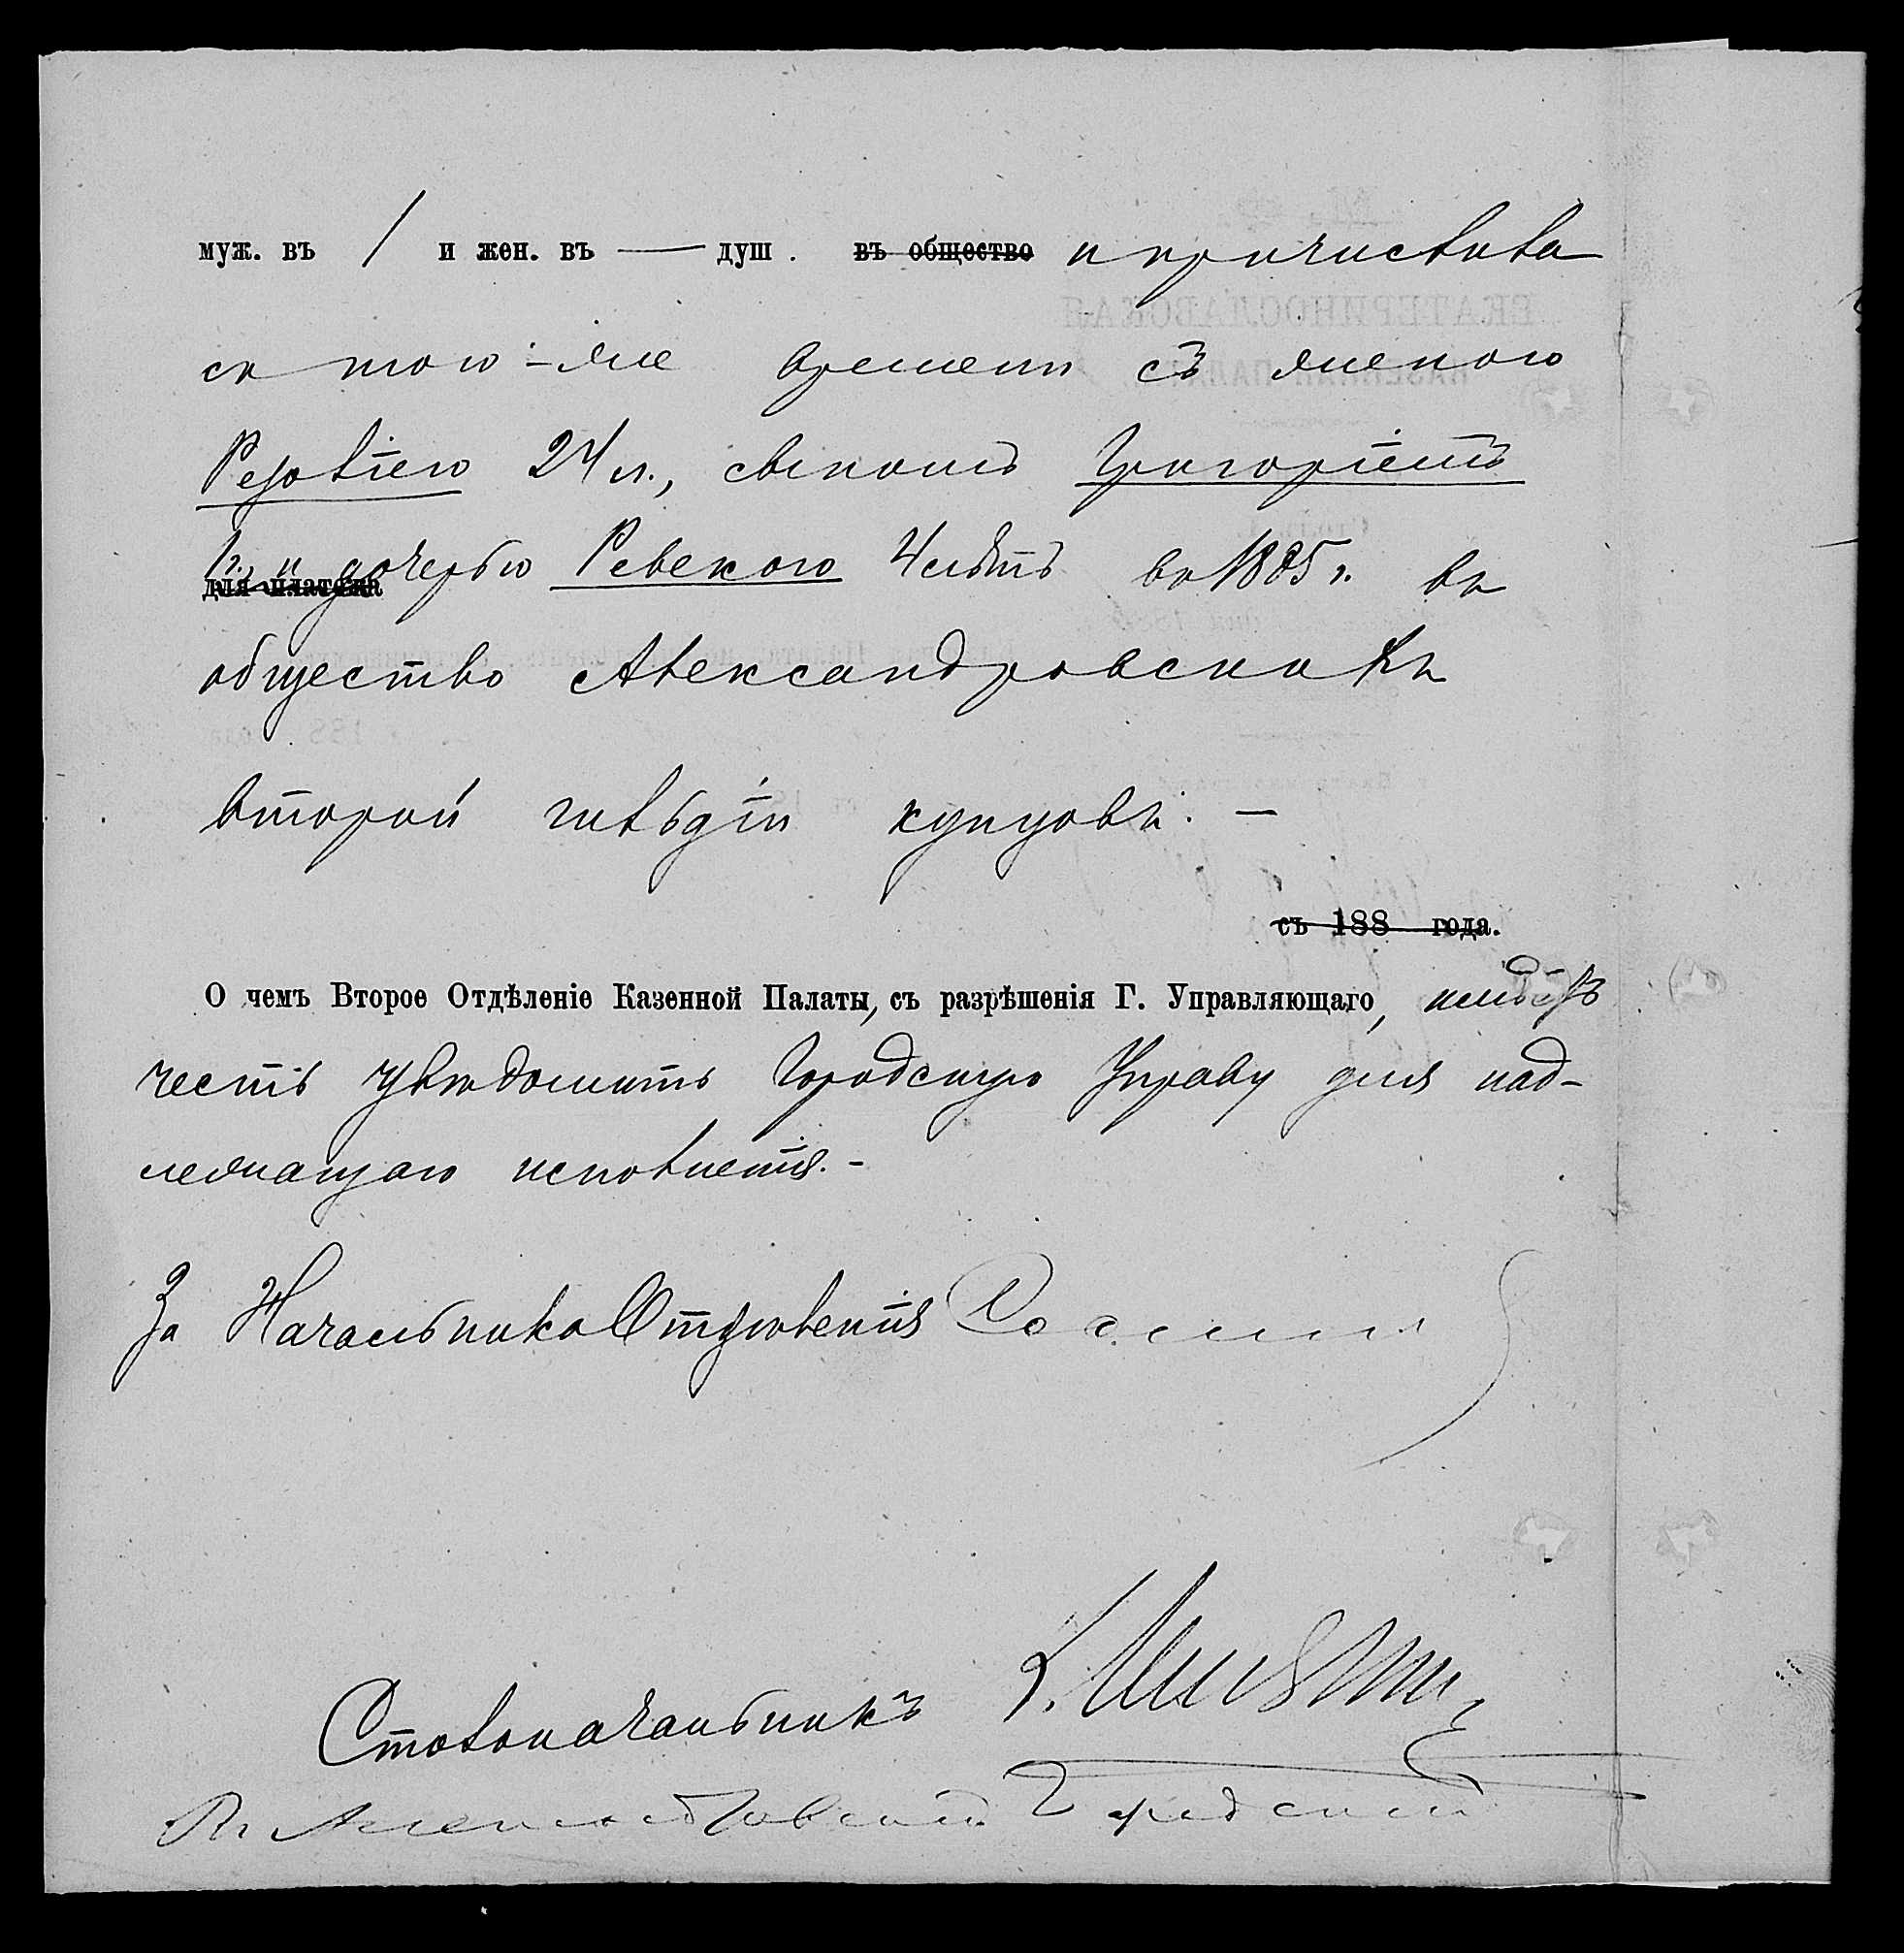 муж. въ 1 и жен. въ — душ. въ общество и причислила
съ того-же времени съ женою
24 л., сыномъ Григоріемъ
1 г. и дочерью Ревекою 4 лѣтъ въ 1885 г. въ
для платежа
общество Александровскихъ
второй гильдіи купцовъ. —
съ 188 года.
О чемъ Второе Отдѣленіе Казенной Палаты, съ разрѣшенія Г. Управляющаго, имѣетъ
честь увѣдомить Городскую Управу для над-
лежащаго исполненія. -
За Начальника Отдѣленія
Столоначальникъ
Въ Александровскую Городскую